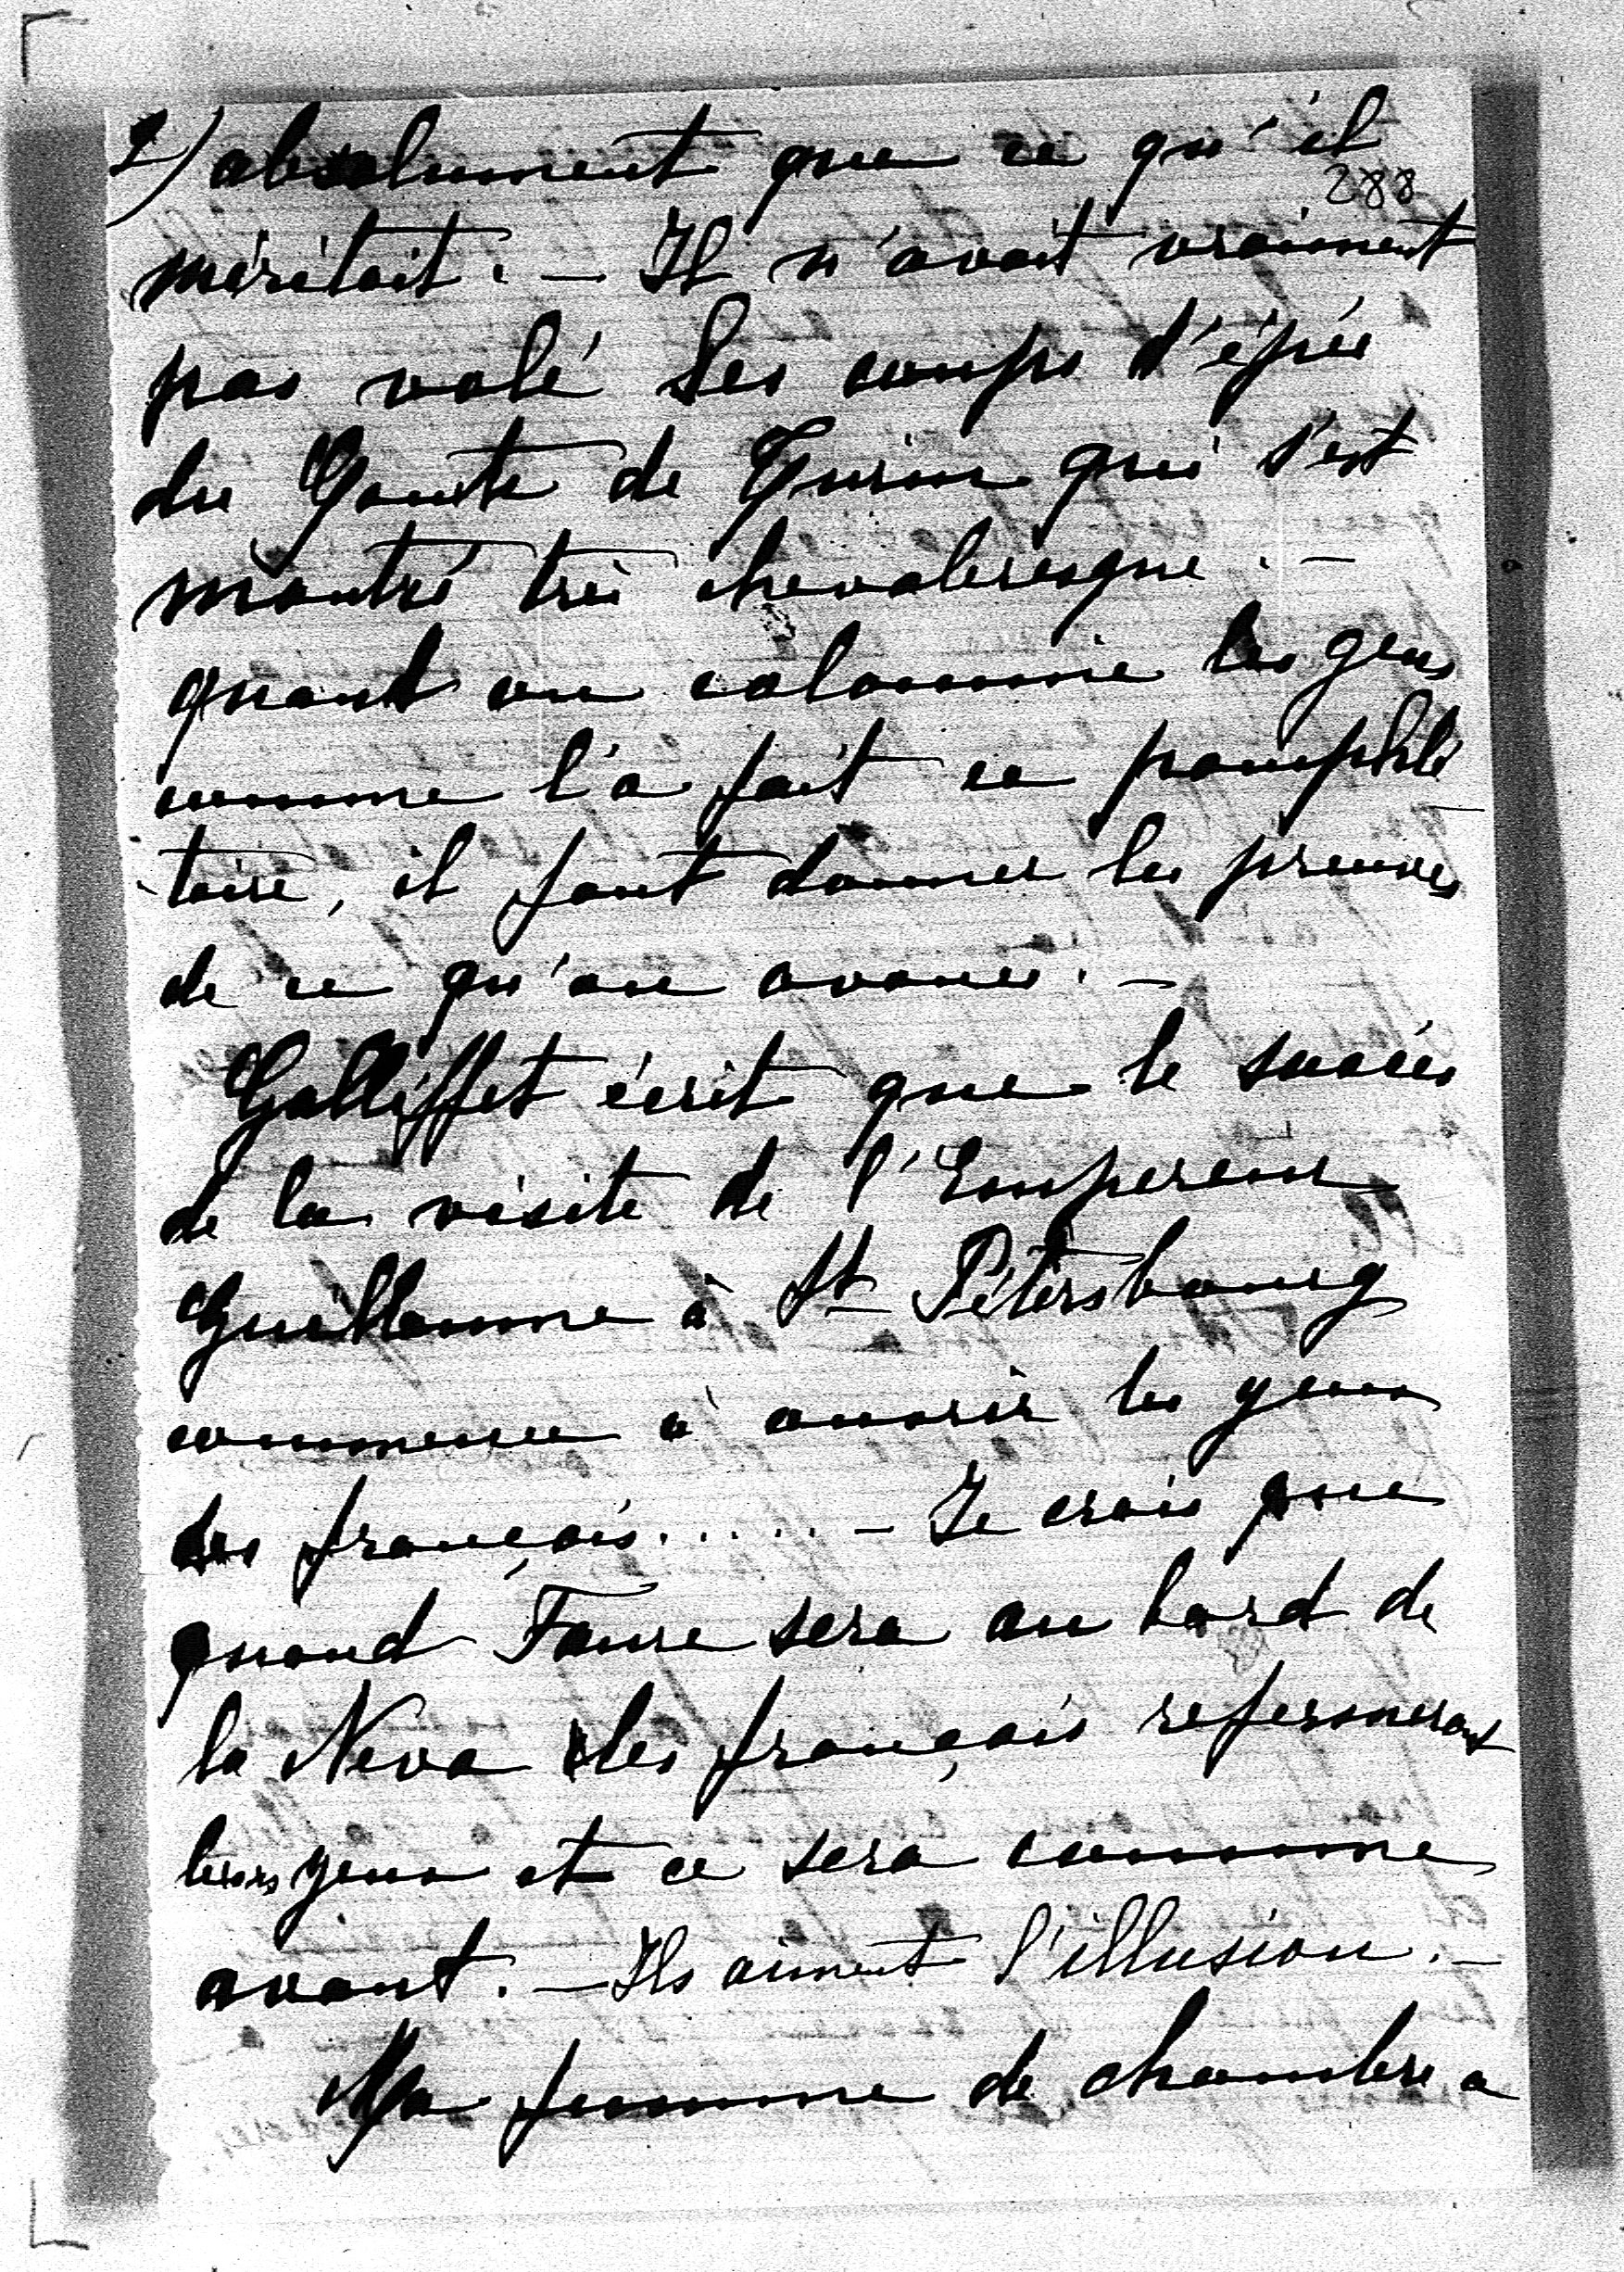 2) absolument que ce qu'il
288
méritait. — Il n'avait vraiment
pas volé ses coups d'épée
du Comte de Turin qui s'est
montré très chevaleresque. —
quand on calomnie les gens
comme l'a fait ce pamphlé
taire, il faut donner les preuves
de ce qu'on avance. —
Galliffet écrit que le succès
de la visite de l'Empereur
Guillaume à St Pétersbourg
commence à ouvrir les yeux
des français..... — Je crois que
quand Faure sera au bord de
la Neva les français refermeront
leurs yeux et ce sera comme
avant. — Ils aiment l'illusion. —
Ma femme de chambre a